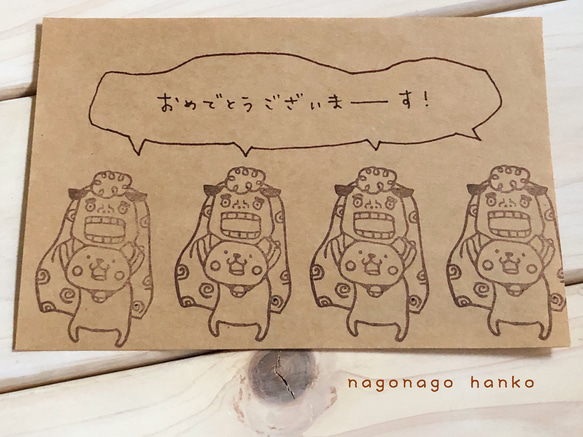 おめでとうございまーす!
nagonago hanko